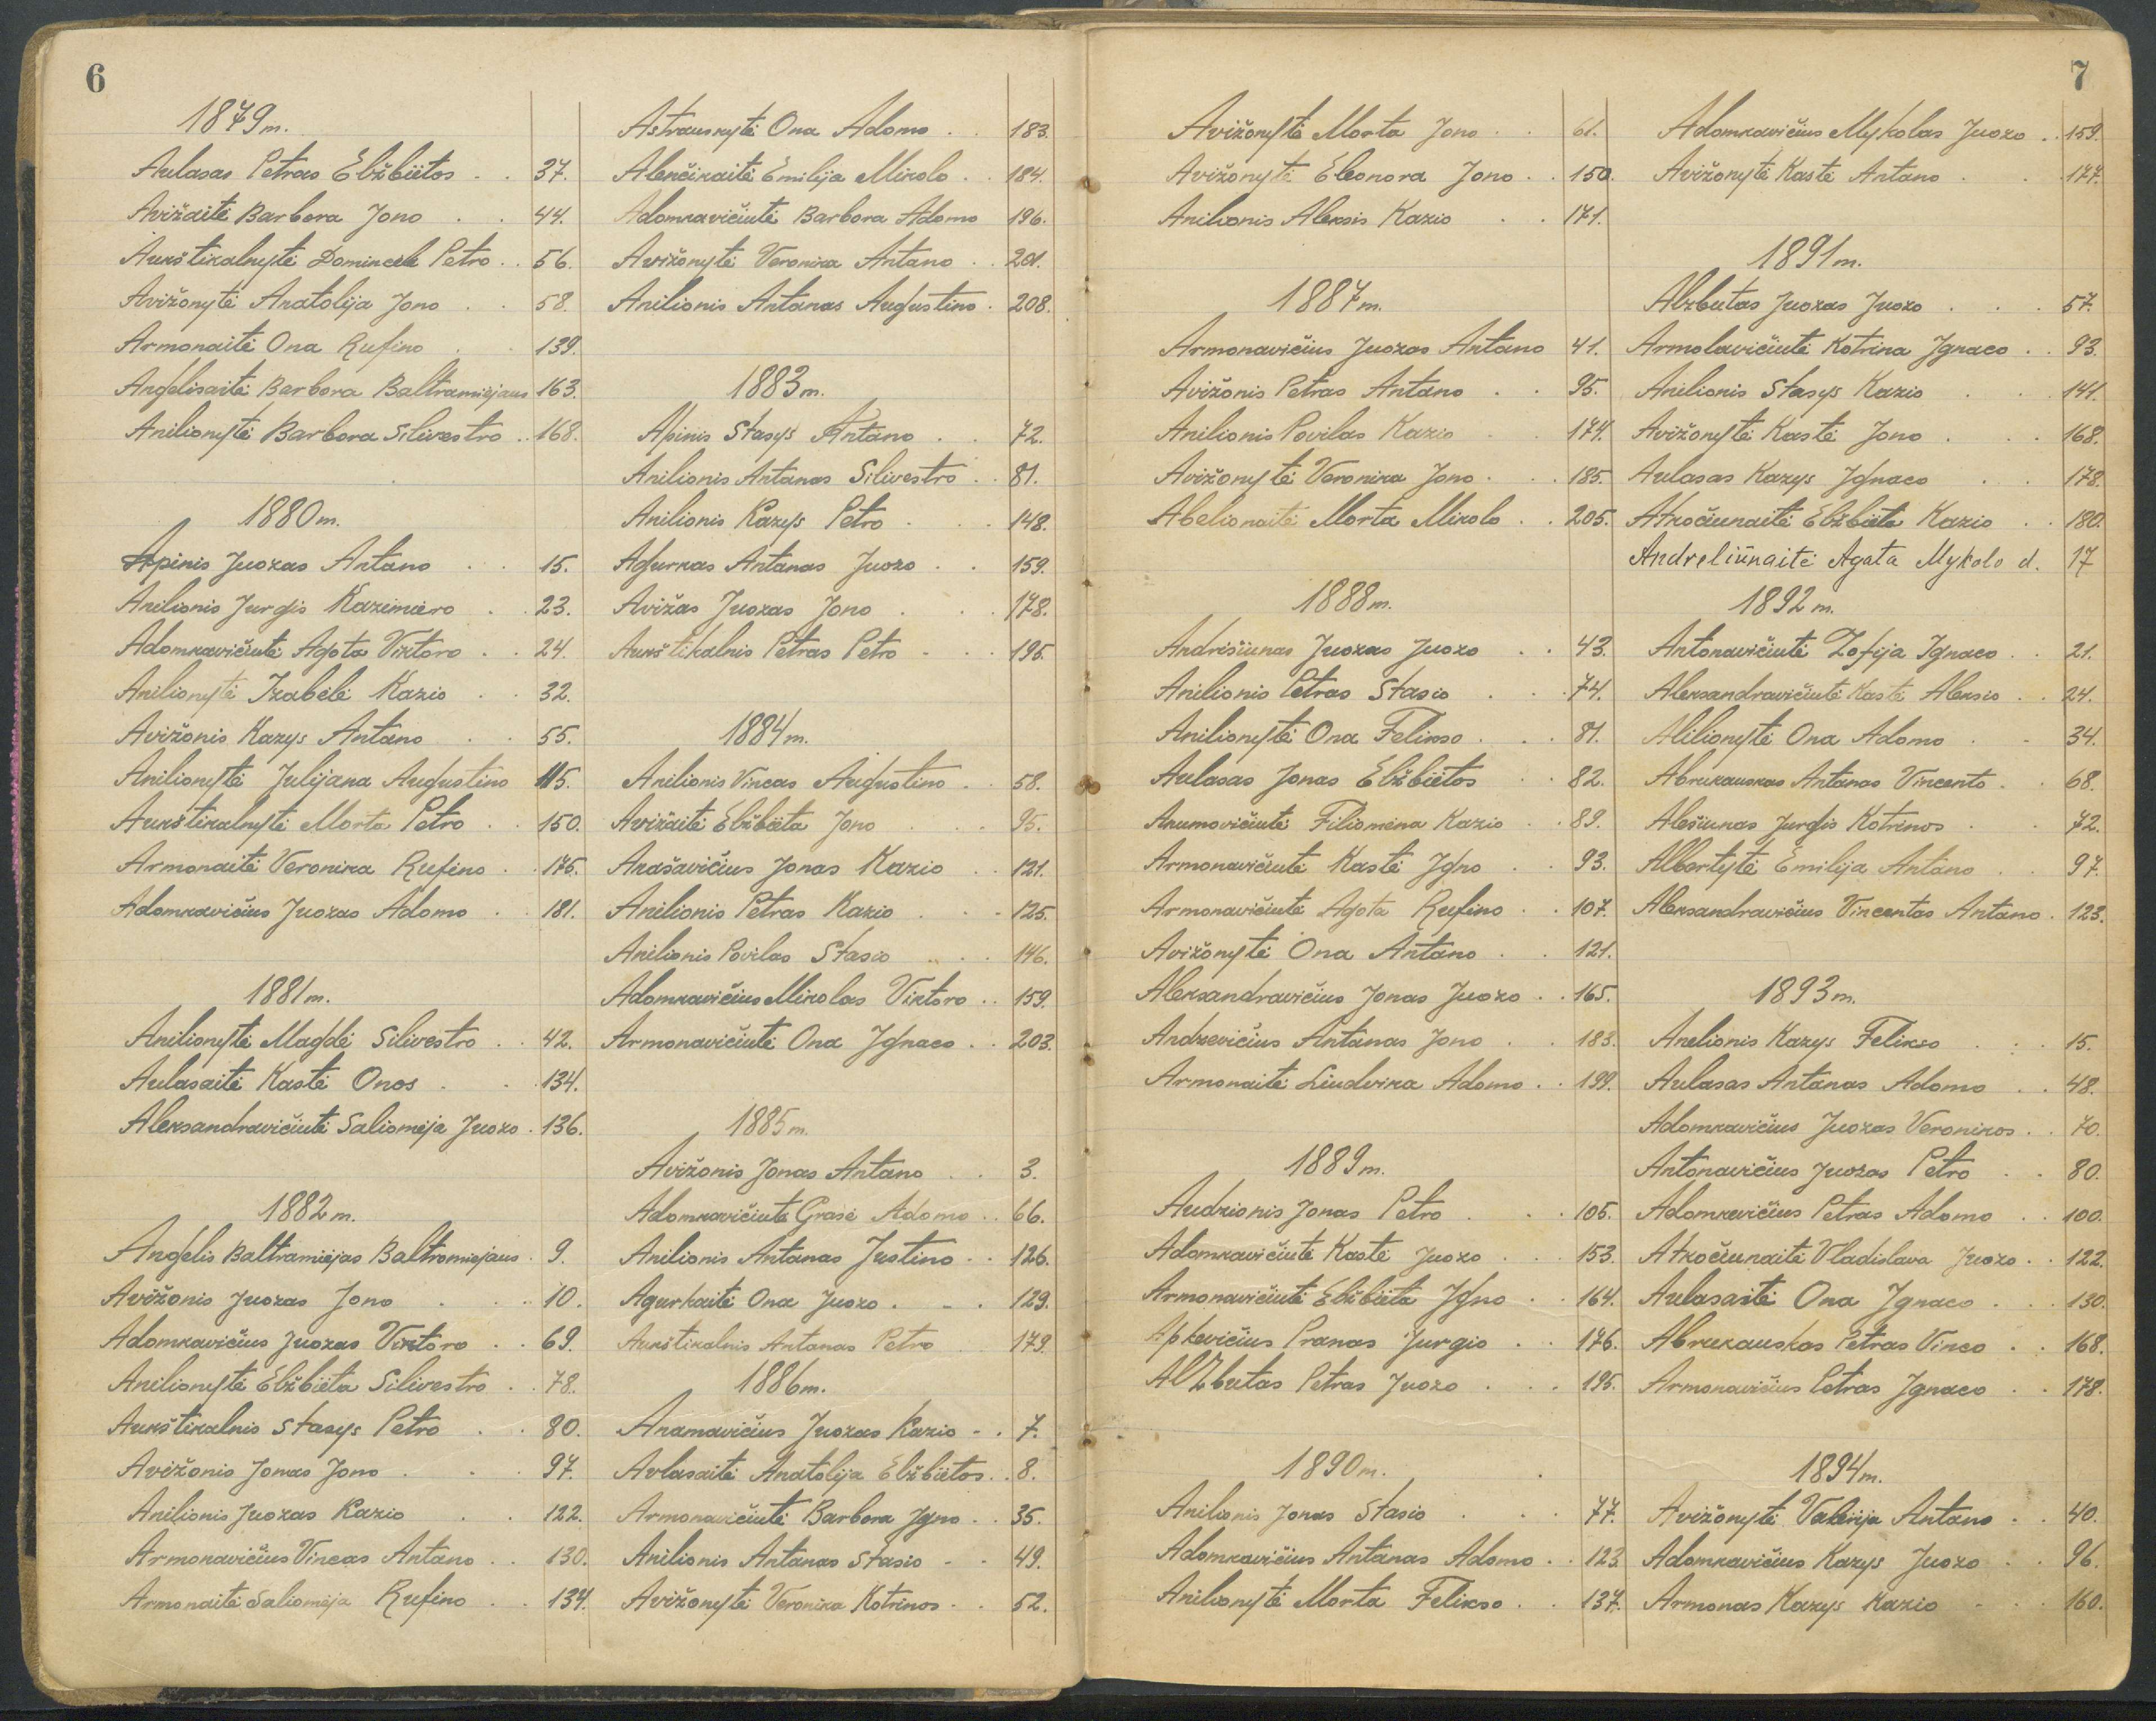 6
1879 m.
Aulasas Petras Elžbiëtos . . 37.
Avižaitė Barbora Jono . . 44.
Aukštikalnytė Domincelė Petro . . 56.
Avižonytė Anatolija Jono . . 58.
Armonaitė Ona Rufino . . 139.
Angelisaitė Barbora Baltramiejaus 163.
Anilionytė Barbora Silivestro . . 168.
1880 m.
Apinis Juozas Antano . . 15.
Anilionis Jurgis Kazimiero . . 23.
Adomkavičiutė Agota Viktoro . . 24.
Anilionytė Izabelė Kazio . . 32.
Avižonis Kazys Antano . . 55.
Anilionytė Julijana Augustino 115.
Aukštikalnytė Morta Petro . . 150.
Armonaitė Veronika Rufino . . 175.
Adomkavičius Juozas Adomo . . 181.
1881 m.
Anilionytė Magdė Silivestro . . 42.
Aulasaitė Kastė Onos . . 134.
Aleksandravičiutė Saliomėja Juozo . 136.
1882 m.
Angelis Baltramiejas Baltromiejaus . 9.
Avižonis Juozas Jono . . . 10.
Adomkavičius Juozas Viktoro . . 69.
Anilionytė Elžbiëta Silivestro . . 78.
Aukštikalnis Stasys Petro . . 80.
Avižonis Jonas Jono . . . 97.
Anilionis Juozas Kazio . . 122.
Armonavičius Vincas Antano . . 130.
Armonaitė Saliomėja Rufino . . 134.
Astrauskytė Ona Adomo . . 183.
Alenčikaitė Emilija Mikolo . . 184.
Adomkavičiutė Barbora Adomo 196.
Avižonytė Veronika Antano . . 201.
Anilionis Antanas Augustino . 208.
1883 m.
Apinis Stasys Antano . . 72.
Anilionis Antanas Silivestro . . 81.
Anilionis Kazys Petro . . . 148.
Agurkas Antanas Juozo . . 159.
Avižas Juozas Jono . . . 178.
Aukštikalnis Petras Petro . . . 195.
1884 m.
Anilionis Vincas Augustino . . 58.
Avižaitė Elžbiėta Jono . . . 95.
Anašavičius Jonas Kazio . . 121.
Anilionis Petras Kazio . . . 125.
Anilionis Povilas Stasio . . . 146.
Adomkavičius Mikolas Viktoro . . 159.
Armonavičiutė Ona Ignaco . . 203.
1885 m.
Avižonis Jonas Antano . . 3.
Adomkavičiutė Grasė Adomo . . 66.
Anilionis Antanas Justino . . 126.
Agurkaitė Ona Juozo . . . 129.
Aukštikalnis Antanas Petro 179.
1886 m.
Anamavičius Juozas Kazio . . 7.
Avlasaitė Anatolija Elžbiëtos . . 8.
Armonavičiutė Barbora Igno . . 35.
Anilionis Antanas Stasio . . 49.
Avižonytė Veronika Kotrinos . . 52.
7
Avižonytė Morta Jono . . 61.
Avižonytė Eleonora Jono . . 150.
Anilionis Aleksis Kazio . . 171.
1887 m.
Armonavičius Juozas Antano 41.
Avižonis Petras Antano . . 95.
Anilionis Povilas Kazio . . 174.
Avižonytė Veronika Jono . . . 185.
Abelionaitė Morta Mikolo . . 205.
1888 m.
Andrišiunas Juozas Juozo . . 43.
Anilionis Petras Stasio . . . 74.
Anilionytė Ona Felikso . . . 81.
Aulasas Jonas Elžbiëtos . . 82.
Anumovičiutė Filiomena Kazio . . 89.
Armonavičiutė Kastė Igno . . 93.
Armonavičiutė Agota Rufino . . 107.
Avižonytė Ona Antano . . 121.
Aleksandravičius Jonas Juozo . . 165.
Andzevičius Antanas Jono . . 183.
Armonaitė Liudvika Adomo . . 199.
1889 m.
Audzionis Jonas Petro . . . 105.
Adomkavičiutė Kastė Juozo . . . 153.
Armonavičiutė Elžbiėta Igno . . 164.
Apkevičius Pranas Jurgio . . 176.
Alzbutas Petras Juozo . . . 195.
1890 m.
Anilionis Jonas Stasio . . . 77.
Adomkavičius Antanas Adomo . . 123.
Anilionytė Morta Felikso . . 137.
Adomkavičius Mykolas Juozo . . 159.
Avižonytė Kastė Antano . . . 177.
1891 m.
Alzbutas Juozas Juozo . . . 57.
Armolavičiutė Kotrina Ignaco . . 93.
Anilionis Stasys Kazio . . . 141.
Avižonytė Kastė Jono . . . 168.
Aulasas Kazys Ignaco . . 178.
Atkočiunaitė Elžbiėta Kazio . . 180.
Andreliūnaitė Agata Mykolo d. 17
1892 m.
Antonavičiutė Zofija Ignaco . . 21.
Aleksandravičiutė Kastė Aleksio . . 24.
Alilionytė Ona Adomo . . 34.
Abrukauskas Antanas Vincento . . 68.
Alešiunas Jurgis Kotrinos . . 72.
Albertytė Emilija Antano . . 97.
Aleksandravičius Vincentas Antano . 123.
1893 m.
Anelionis Kazys Felikso . . . 15.
Aulasas Antanas Adomo . . 48.
Adomkavičius Juozas Veronikos . . 70.
Antonavičius Juozas Petro . . 80.
Adomkavičius Petras Adomo . . 100.
Atkočiunaitė Vladislava Juozo . . 122.
Aulasaitė Ona Ignaco . . . 130.
Abrukauskas Petras Vinco . . 168.
Armonavičius Petras Ignaco . . 178.
1894 m.
Avižonytė Valerija Antano . . 40.
Adomkavičius Kazys Juozo . . 96.
Armonas Kazys Kazio . . . 160.